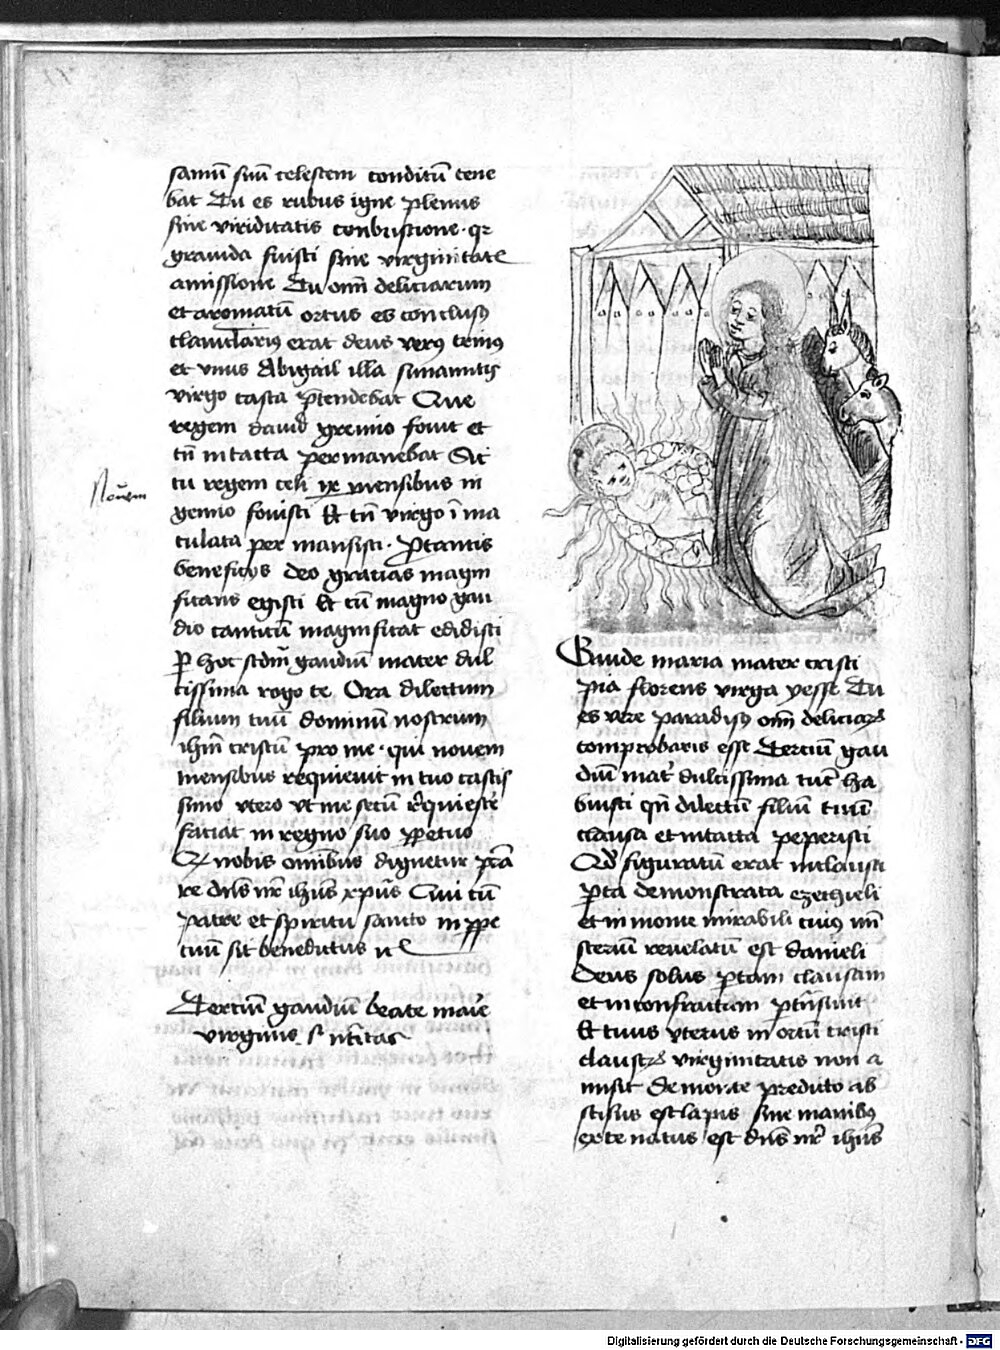 samū suū celestem conditū tene
bat Tu es rubus igne plenus
sine viriditatis conbustione · qr
grauida fuisti sine virginitate
amissione Tu oīm deliciarum
et aromatū ortus es conclusꝰ
clauiculariꝰ erat deus verꝰ trinꝰ
et vnus Abigail illa sunamitis
virgo casta p̄tendebat Que
regem dauid gremio fouit et
tn̄ intacta permanebat Sic
tu regem celi ix mensibus in
gremio fouisti Et tn̄ virgo īma
culata per mansisti · Portantis
beneficijs deo gracias magni
ficans egisti Et cū magno gau
dio canticū magnificat edidisti
ꝑ hoc scdm̄ gaudiū mater dul
cissima rogo te Ora dilectum
filium tuū dominū nostrum
ihm̄ cristū pro me · qui nouem
mensibus requieuit in tuo castis
simo vtero vt me secū reꝗescere
faciat in regno suo ꝑpetuo
Q nobis omībus dignetur p̄sta
re dn̄s nr̄ ihūs xpūs Cui cū
patre et spiritu sancto in ꝑpe
tuū sit benedictus
Nouem
Terciū gaudiū beate marie
virginis
Gaude maria mater cristi
pia florens virga yesse Tu
es vere paradisꝰ oīm deliciaꝝ
comprobaris esse Terciū gau
diū mat̄ dulcissima tuc̄ ha
buisti qn̄ dilectū filiū tuū
clausa et intacta peperisti
Qd̄ figuratū erat in clausa
p̄ta demonstrata ezechieli
et in monte mirabili cuiꝰ mi
steriū reuelatū est danieli
Deus solus p̄tam clausam
et inconfractam p̄trāsiuit
Et tuus vterus in ortu cristi
claustꝝ virginitatis non a
misit De monte preducto ab
scisus est lapis sine manibꝰ
ex te natus est dn̄s nr̄ ihūs
Digitalisierung gefördert durch die Deutsche Forschungsgemeinschaft - DFG